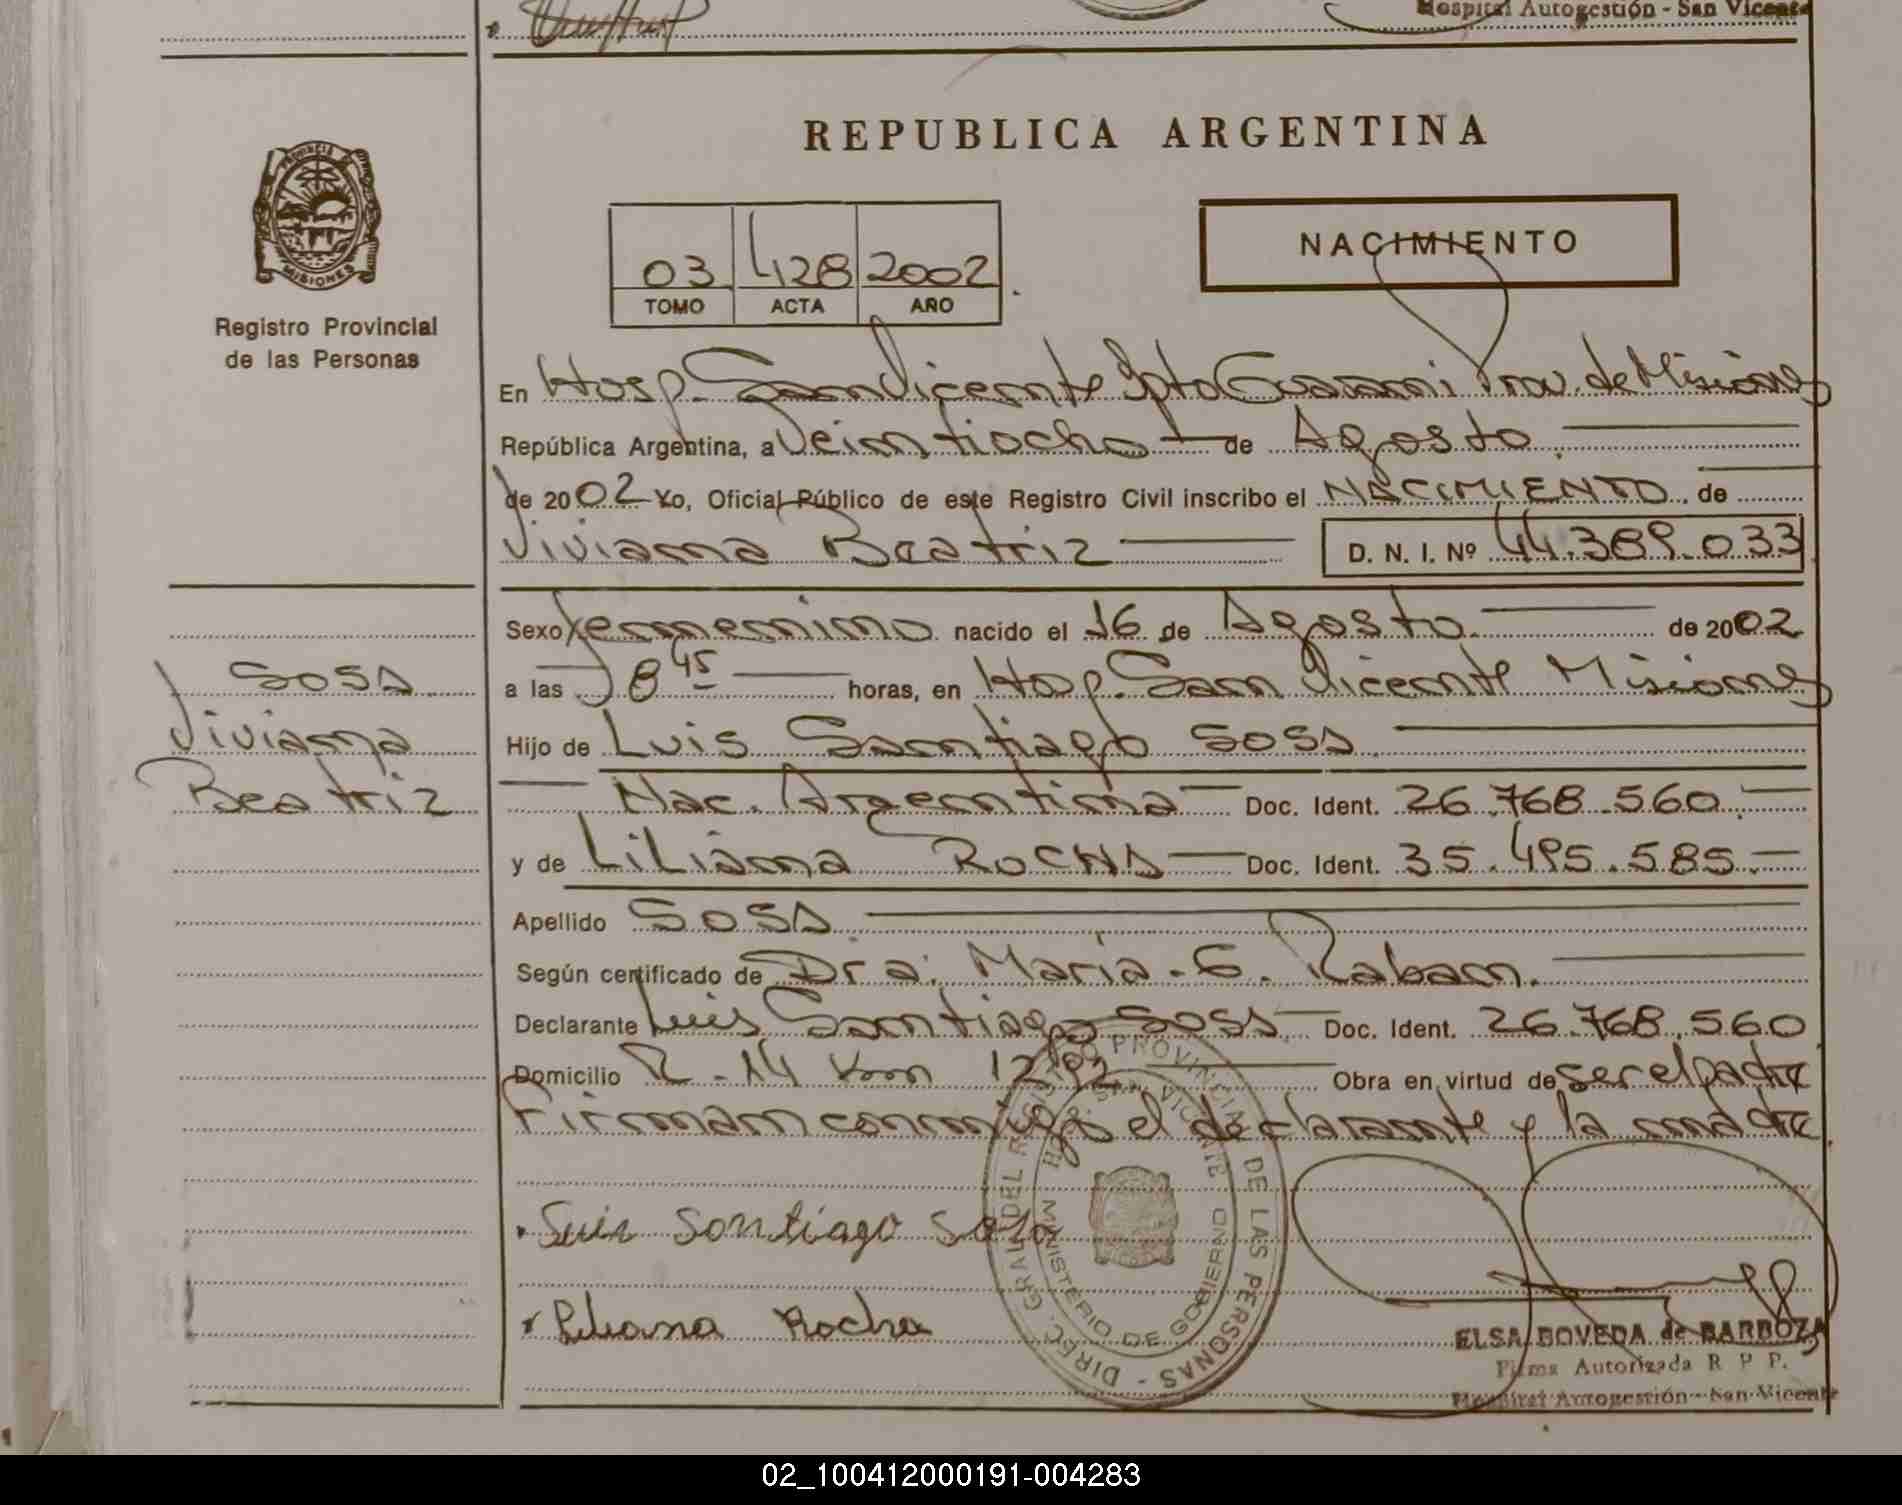 Hospital Autogestión - San Vicente
REPUBLICA ARGENTINA
PROVINCIA DE
MISIONES
Registro Provincial
de las Personas
NACIMIENTO
03 428 2002
TOMO ACTA AÑO
En Hosp. San Vicente Dpto Guarani Prov. de Misiones
República Argentina, a Veintiocho de Agosto
de 2002 Yo, Oficial Público de este Registro Civil inscribo el NACIMIENTO de
Viviana Beatriz D. N. I. Nº 44.389.033
Sexo femenino nacido el 16 de Agosto de 2002
a las 8 45 horas, en Hosp. San Vicente Misiones
Hijo de Luis Santiago SOSA
Nac. Argentina Doc. Ident. 26.768.560
y de Liliana ROCHA Doc. Ident. 35.495.585
Apellido SOSA
Según certificado de Dra. Maria - G. Raban.
Declarante Luis Santiago SOSA Doc. Ident. 26.768.560
Domicilio R - 14 Km 1292 Obra en virtud de ser el padre
Firman conmigo el declarante y la madre
SOSA
Viviana
Beatriz
Luis Santiago Sosa
Liliana Rocha
DIREC. GRAL. DEL REGISTRO PROVINCIAL DE LAS PERSONAS
MINISTERIO DE GOBIERNO
ELSA BOVEDA de BARBOZA
Firma Autorizada R P P.
Hospital Autogestión - San Vicente
02_100412000191-004283